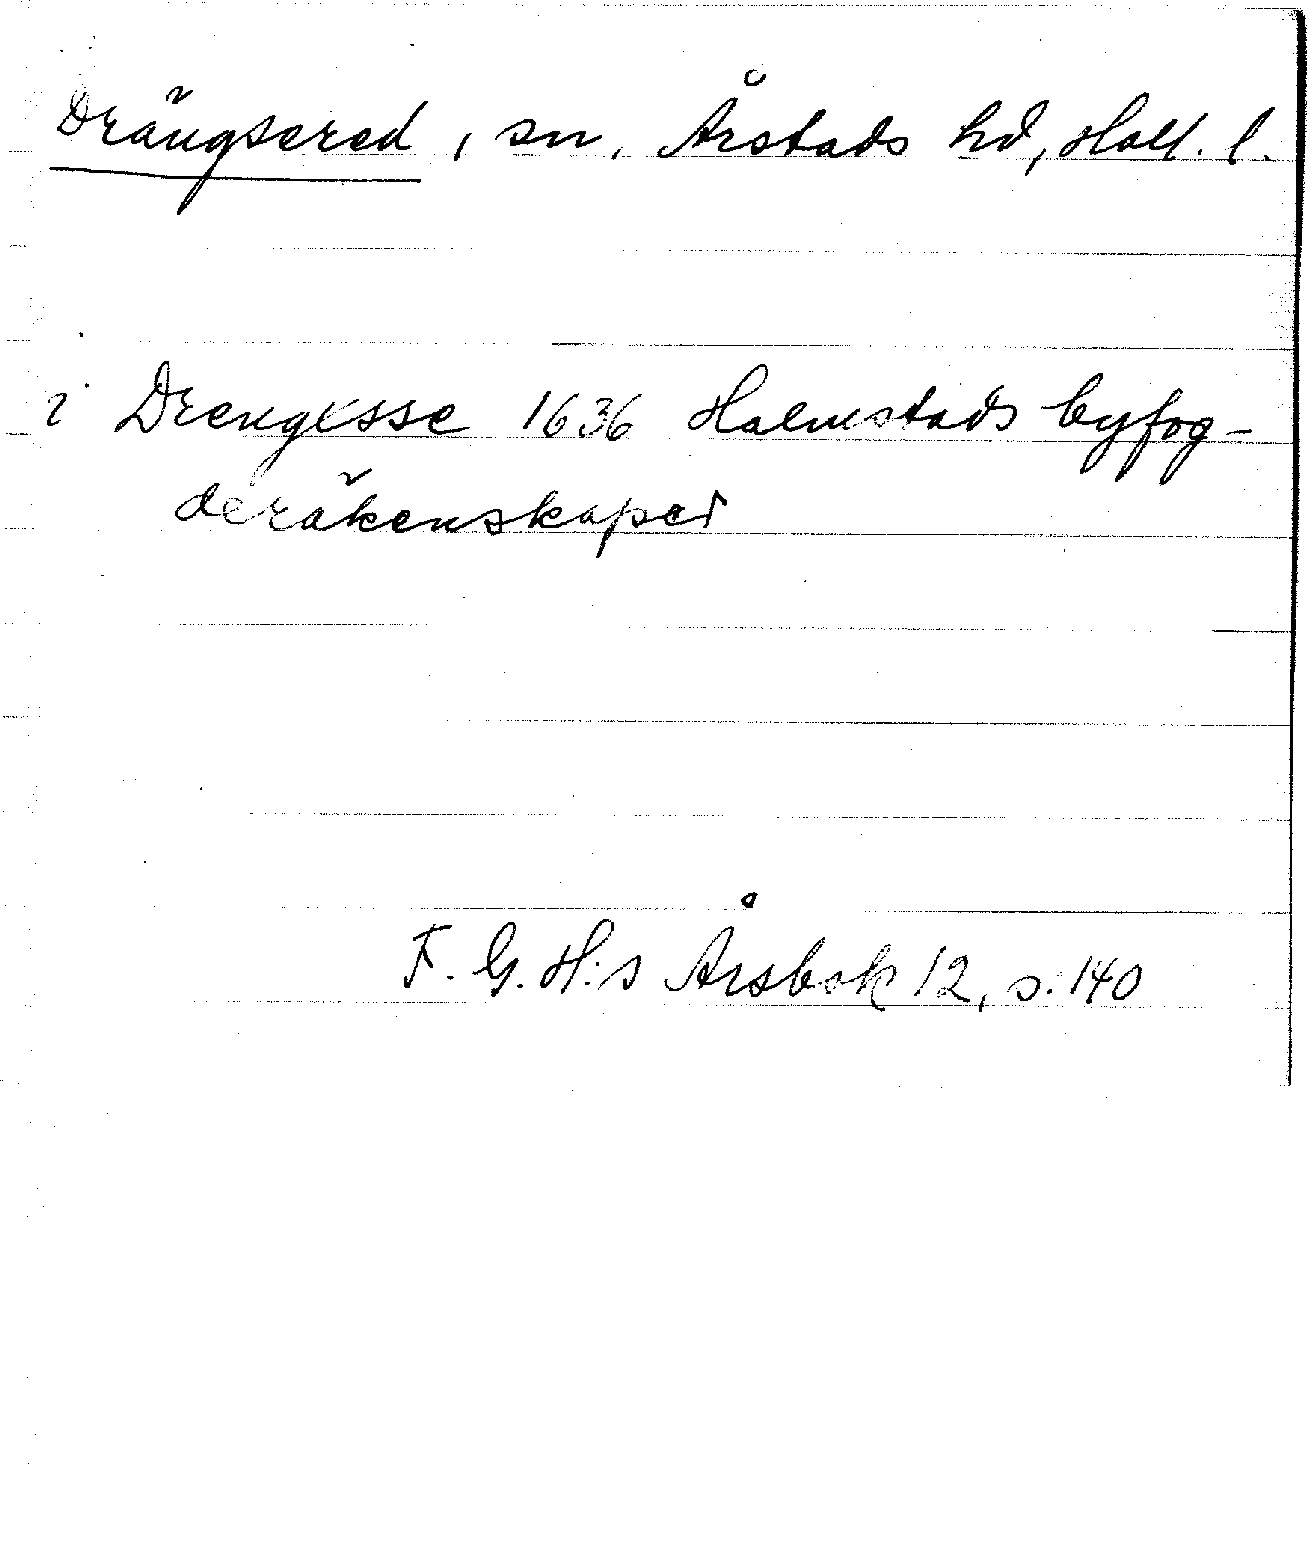 Drängsered, sn, Årstads hd, Hall. l.
i Drengesse 1636 Halmstads byfog-
deräkenskaper
F. G. H:s Årsbok 12, s. 140